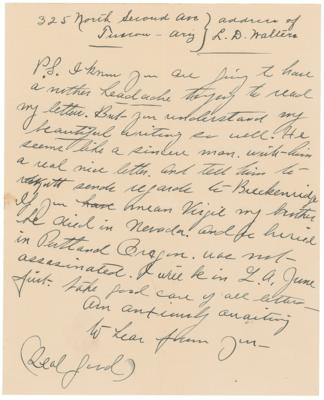 325 North Second Ave } address of
Tucson - ary } L. D. Walters
P.S. I know you are going to have
a nother headache trying to read
my letter. But you understand my
beautiful writing so well. He
seems like a sincere man. with him
a real nice letter. and tell him to
sende regarde to Breckenridge
If you have mean Virgil my brother
he died in Nevada. and he buried
in Portland Oregon. was not-
assasinated. I will be in L.A. June
first. take good care of all letters-
Am anxiously awaiting
to hear from you-
(Deal Good)